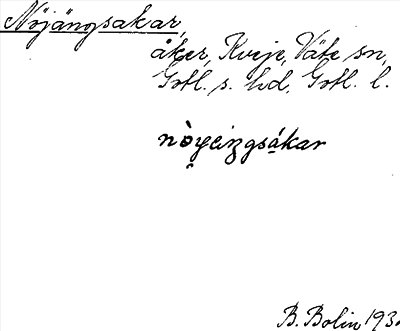 Nöjängsakar,
åker, Kveje, Väte sn,
Gotl. s. hd, Gotl. l.
nòyęiŋgsákar
B. Bolin 193